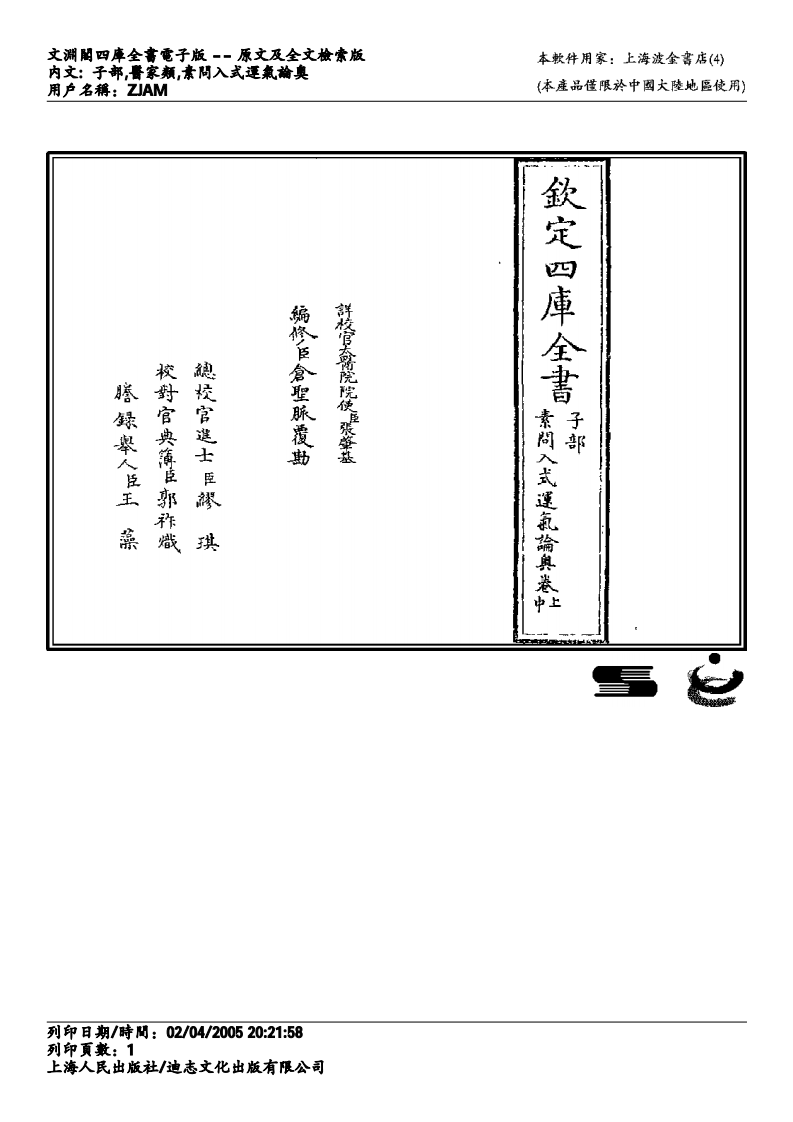 文淵閣四庫全書電子版 -- 原文及全文檢索版
內文：子部,醫家類,素問入式運氣論奧
用戶名稱：ZJAM
本軟件用家：上海波金書店(4)
(本產品僅限於中國大陸地區使用)
欽定四庫全書
子部
素問入式運氣論奧卷上中
詳校官太醫院院使臣張肇基
編修臣倉聖脈覆勘
總校官進士臣繆琪
校對官典簿臣郭祚熾
謄錄舉人臣王藻
列印日期/時間：02/04/2005 20:21:58
列印頁數：1
上海人民出版社/迪志文化出版有限公司